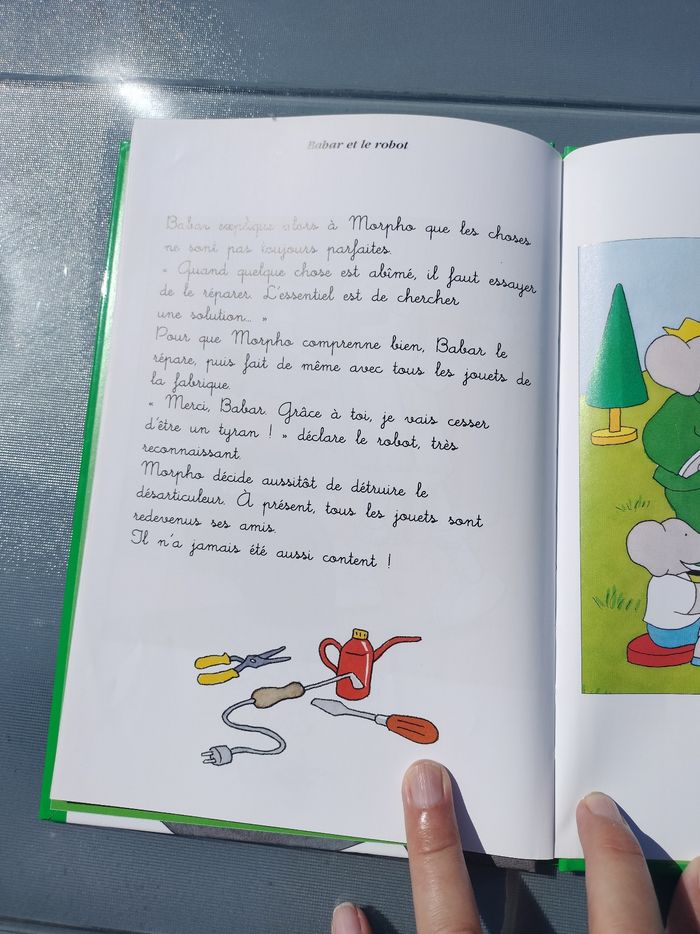 Babar et le robot
Babar explique alors à Morpho que les choses
ne sont pas toujours parfaites.
« Quand quelque chose est abîmé, il faut essayer
de le réparer. L'essentiel est de chercher
une solution... »
Pour que Morpho comprenne bien, Babar le
répare, puis fait de même avec tous les jouets de
la fabrique.
« Merci, Babar. Grâce à toi, je vais cesser
d'être un tyran ! » déclare le robot, très
reconnaissant.
Morpho décide aussitôt de détruire le
désarticuleur. À présent, tous les jouets sont
redevenus ses amis.
Il n'a jamais été aussi content !